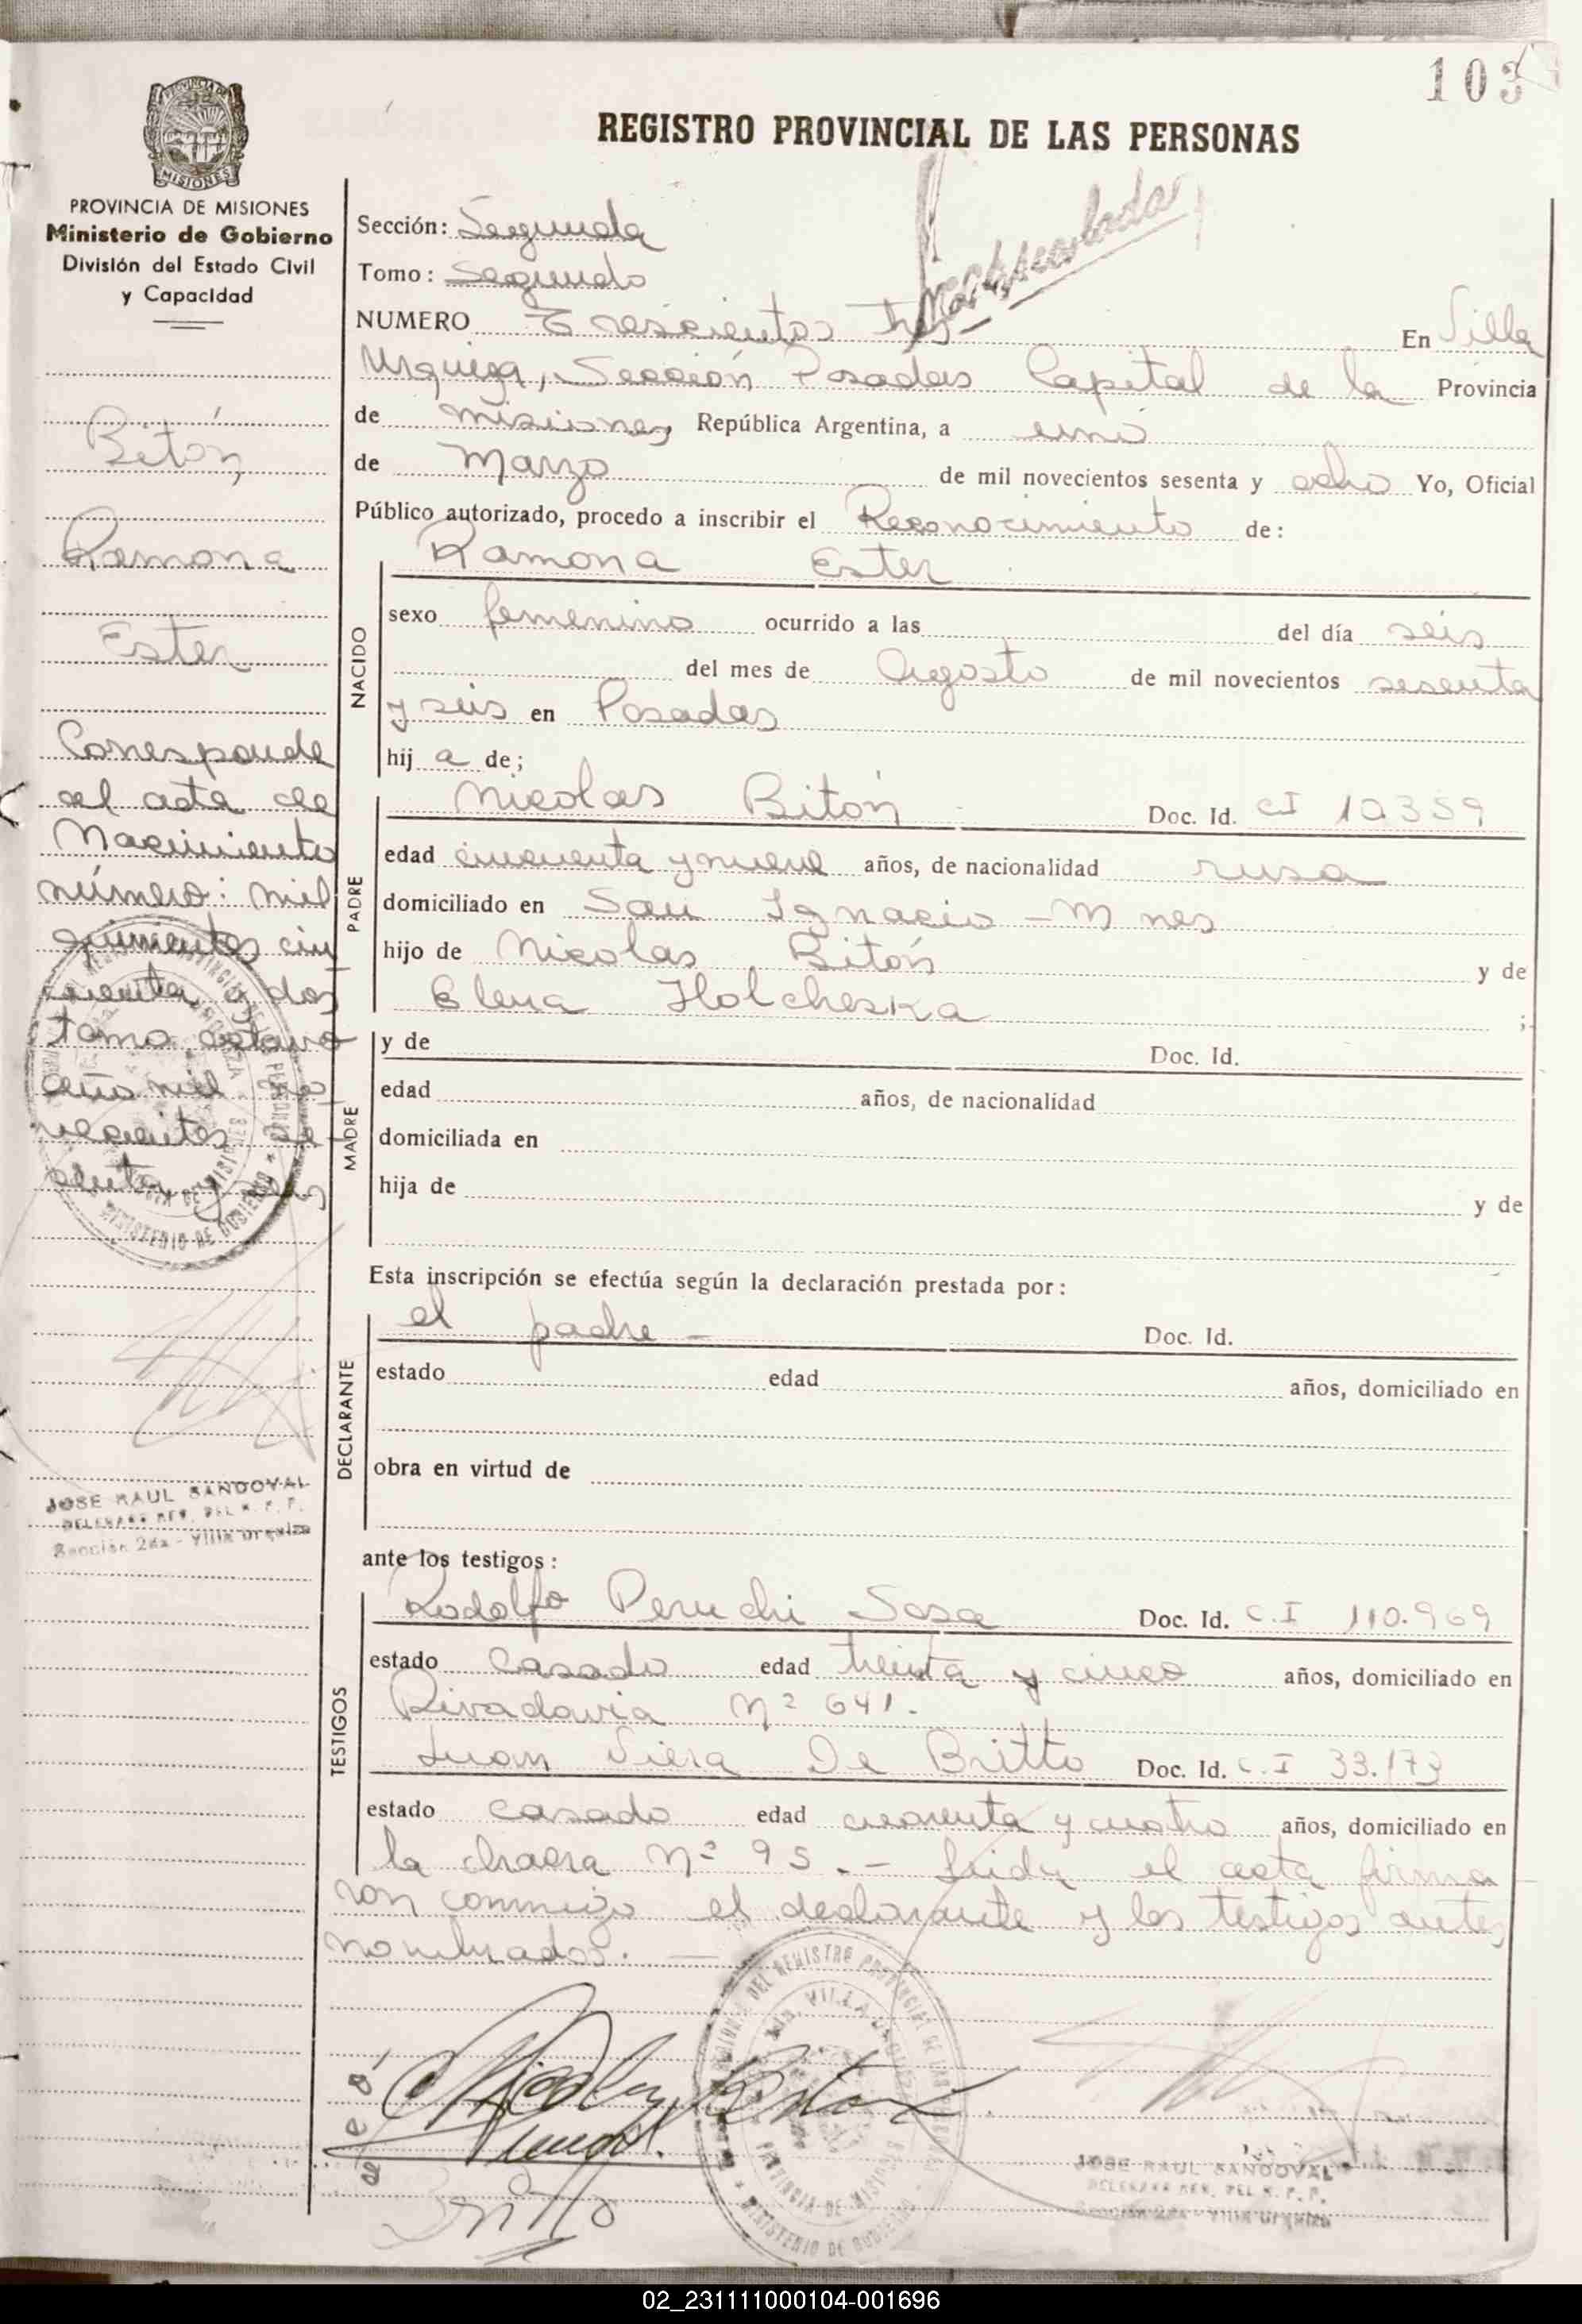 103
REGISTRO PROVINCIAL DE LAS PERSONAS
MISIONES
PROVINCIA DE MISIONES
Ministerio de Gobierno
División del Estado Civil
y Capacidad
Bitón
Ramona
Ester
Corresponde
al acta de
Nacimiento
número: mil
quinientos cin
cuenta y dos
tomo octavo
año mil no
vecientos se
senta y seis
JOSE RAUL SANDOVAL
Sección 2da - Villa Urquiza
Sección: Segunda
Tomo: Segundo
NUMERO Trescientos tres En Villa
Urquiza, Sección Posadas Capital de la Provincia
de Misiones República Argentina, a uno
de Marzo de mil novecientos sesenta y ocho Yo, Oficial
Público autorizado, procedo a inscribir el Reconocimiento de:
NACIDO
Ramona Ester
sexo femenino ocurrido a las del día seis
del mes de Agosto de mil novecientos sesenta
y seis en Posadas
hij a de;
PADRE
Nicolas Bitón Doc. Id. CI 10359
edad cincuenta y nueve años, de nacionalidad rusa
domiciliado en San Ignacio - Mnes
hijo de Nicolas Bitón y de
Elena Holcheska ;
MADRE
y de Doc. Id.
edad años, de nacionalidad
domiciliada en
hija de y de
Esta inscripción se efectúa según la declaración prestada por:
DECLARANTE
el padre - Doc. Id.
estado edad años, domiciliado en
obra en virtud de
ante los testigos:
TESTIGOS
Rodolfo Peruchi Sosa Doc. Id. C.I 110.969
estado casado edad treinta y cinco años, domiciliado en
Rivadavia Nº 641.
Juan Viera De Britto Doc. Id. C.I 33.173
estado casado edad cuarenta y cuatro años, domiciliado en
la chacra Nº 95.- Leida el acta firma
ron conmigo el declarante y los testigos antes
nombrados. —
Nicolas Biton
Britto
JOSE RAUL SANDOVAL
Sección 2da - Villa Urquiza
02_231111000104-001696